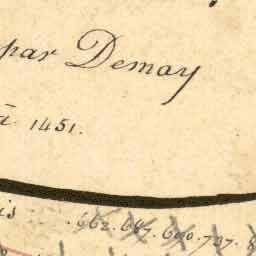 par Demay
à 1451.
is 662. 667. 670. 707.